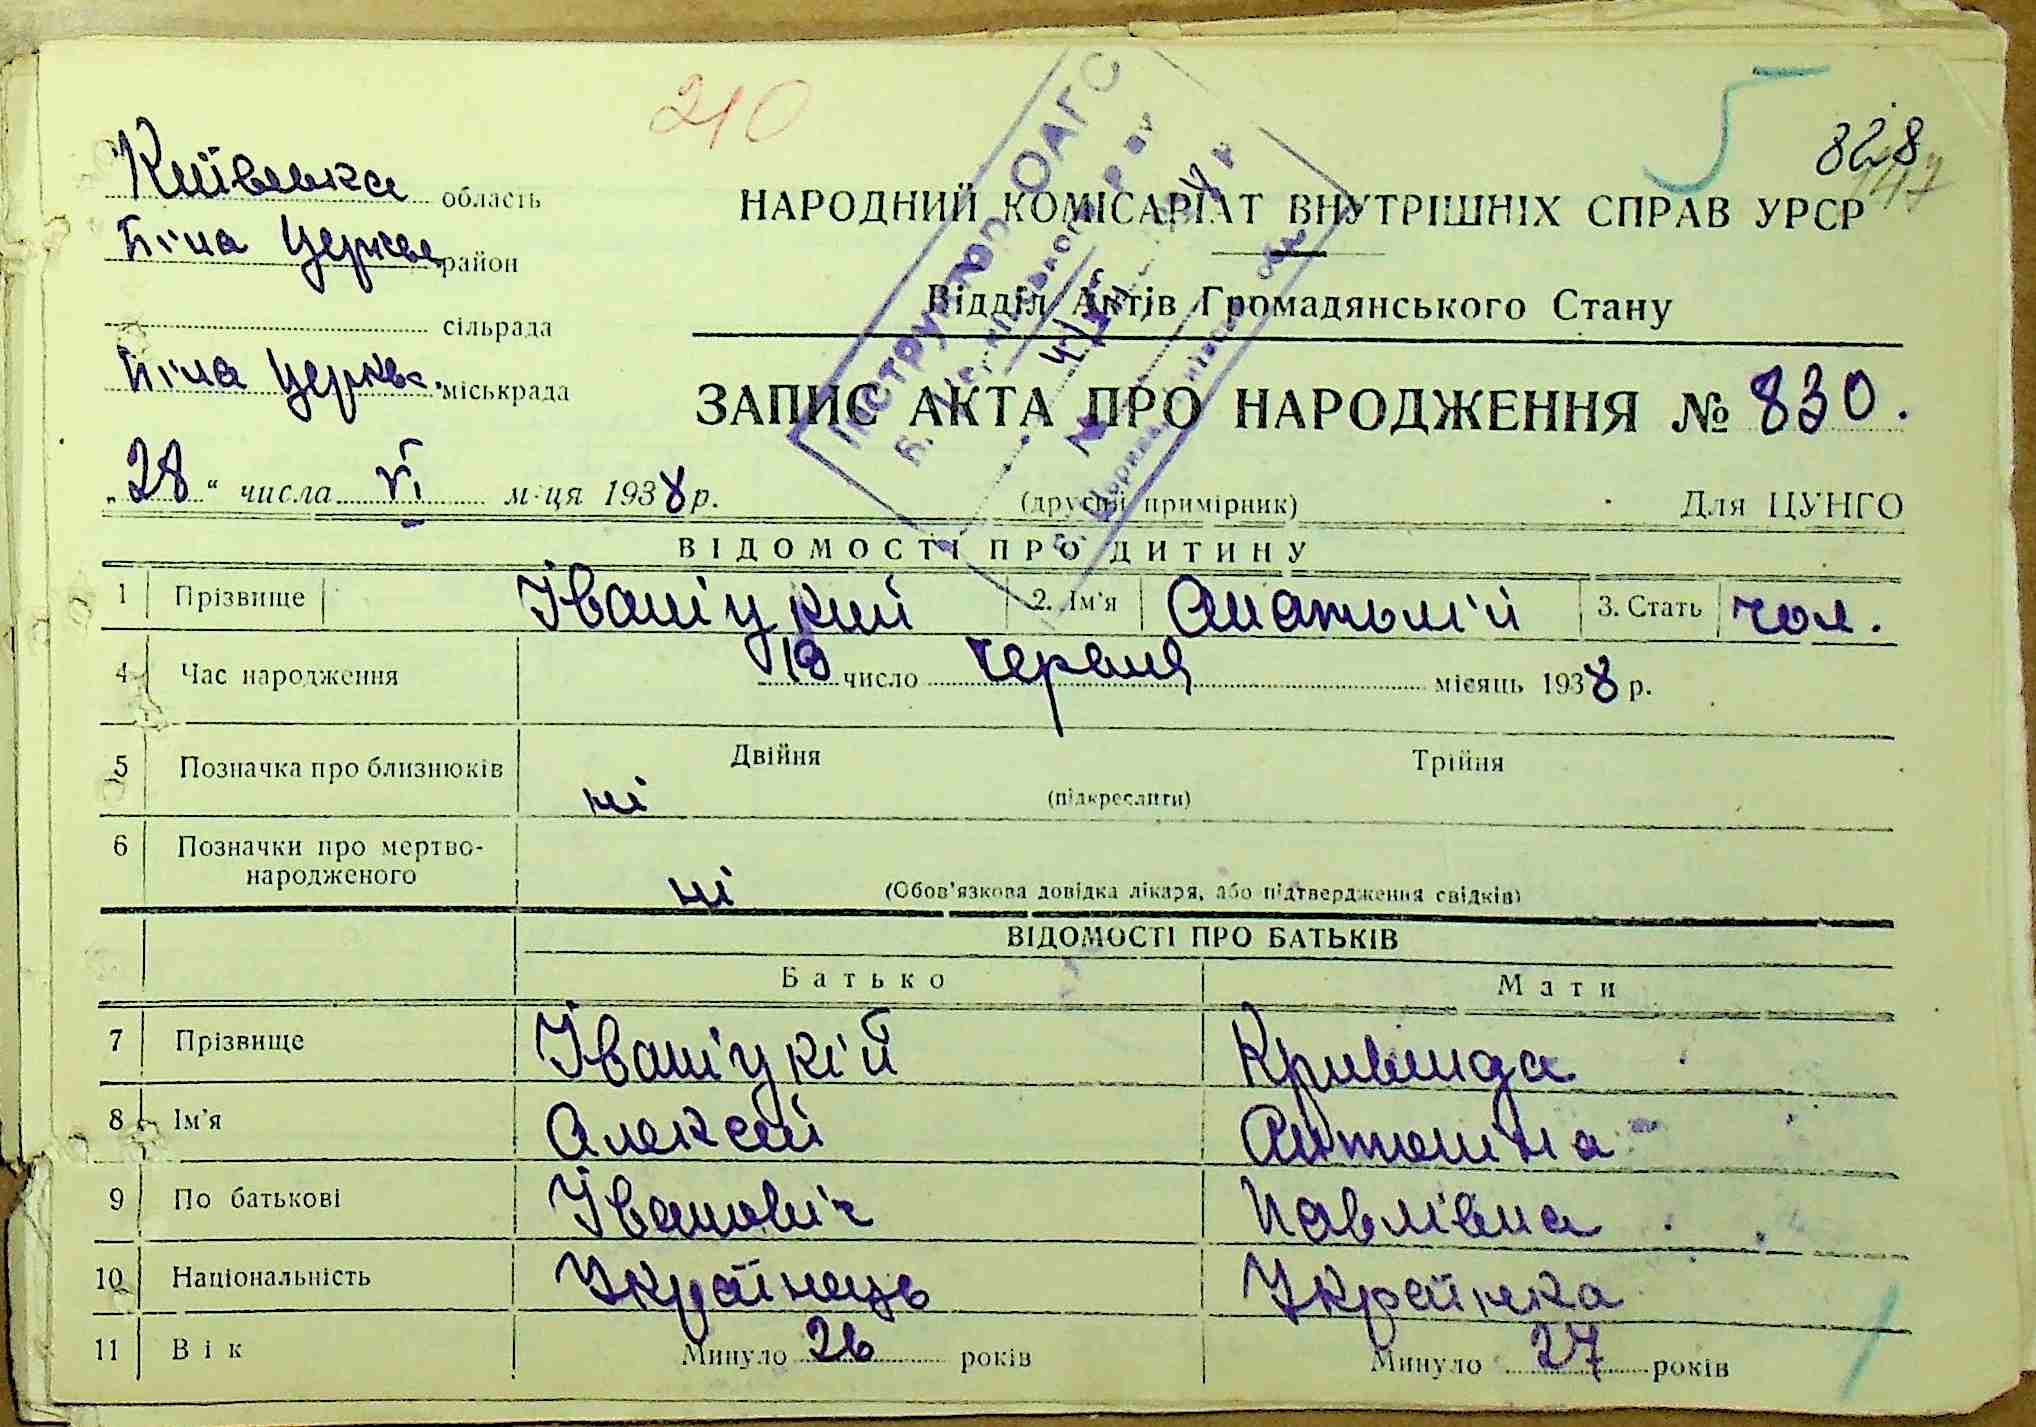 210
5
828
Київська область
Біла Церква район
сільрада
Біла Церкв. міськрада
НАРОДНИЙ КОМІСАРІАТ ВНУТРІШНІХ СПРАВ УРСР
Відділ Актів Громадянського Стану
ЗАПИС АКТА ПРО НАРОДЖЕННЯ № 830.
"28" числа VI м-ця 1938 р.
(другий примірник)
Для ЦУНГО
ІНСТРУКТОР ОАГС
ВІДОМОСТІ ПРО ДИТИНУ
1 Прізвище Іваніцкий 2. Ім'я Анатолій 3. Стать чол.
4 Час народження 13 число червня місяць 1938 р.
5 Позначка про близнюків ні Двійня Трійня
(підкреслити)
6 Позначки про мертво-
народженого ні (Обов'язкова довідка лікаря, або підтвердження свідків)
ВІДОМОСТІ ПРО БАТЬКІВ
Батько Мати
7 Прізвище Іваніцкій Кривинда
8 Ім'я Алексей Антоніна
9 По батькові Івановіч Павлівна
10 Національність Українець Українка
11 Вік Минуло 26 років Минуло 27 років